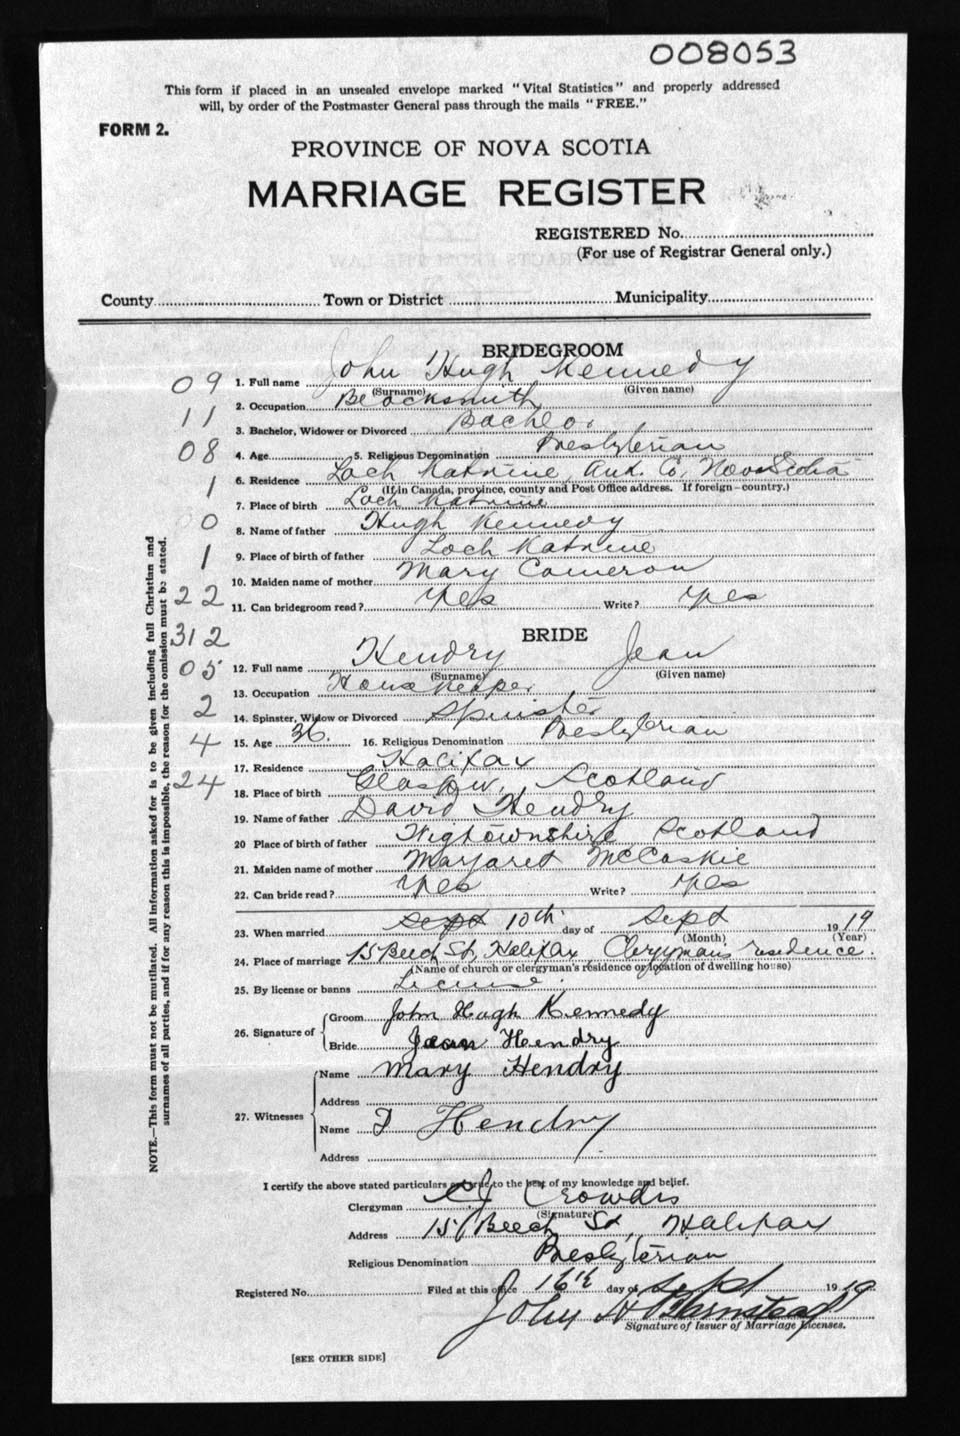 008053
This form if placed in an unsealed envelope marked "Vital Statistics" and properly addressed
will, by order of the Postmaster General pass through the mails "FREE."
FORM 2.
PROVINCE OF NOVA SCOTIA
MARRIAGE REGISTER
REGISTERED No.
(For use of Registrar General only.)
County Town or District Municipality
BRIDEGROOM
09 1. Full name John Hugh Kennedy
(Surname) (Given name)
2. Occupation Blacksmith
11 3. Bachelor, Widower or Divorced Bachelor
08 4. Age 5. Religious Denomination Presbyterian
6. Residence Loch Katrine, Ant. Co, Nova Scotia
(If in Canada, province, county and Post Office address. If foreign—country.)
1 7. Place of birth Loch Katrine
0 8. Name of father Hugh Kennedy
1 9. Place of birth of father Loch Katrine
10. Maiden name of mother Mary Cameron
22 11. Can bridegroom read? Yes Write? Yes
312 BRIDE
05 12. Full name Hendry Jean
(Surname) (Given name)
13. Occupation Housekeeper
2 14. Spinster, Widow or Divorced Spinster
4 15. Age 36. 16. Religious Denomination Presbyterian
17. Residence Halifax
24 18. Place of birth Glasgow, Scotland
19. Name of father David Hendry
20 Place of birth of father Wigtownshire, Scotland
21. Maiden name of mother Margaret McCaskie
22. Can bride read? Yes Write? Yes
23. When married Sept 10th day of Sept 1919
(Month) (Year)
24. Place of marriage 15 Beech St, Halifax, Clergyman's residence.
(Name of church or clergyman's residence or location of dwelling house)
25. By license or banns License.
26. Signature of Groom John Hugh Kennedy
Bride Jean Hendry
27. Witnesses Name Mary Hendry
Address
Name Hendry
Address
I certify the above stated particulars are true to the best of my knowledge and belief.
Clergyman Crowdis
(Signature)
Address 15 Beech St, Halifax
Religious Denomination Presbyterian
Registered No. Filed at this office 16th day of Sept 1919
John H Barnstead
Signature of Issuer of Marriage Licenses.
[SEE OTHER SIDE]
NOTE.—This form must not be mutilated. All information asked for is to be given including full Christian and
surnames of all parties, and if for any reason this is impossible, the reason for the omission must be stated.